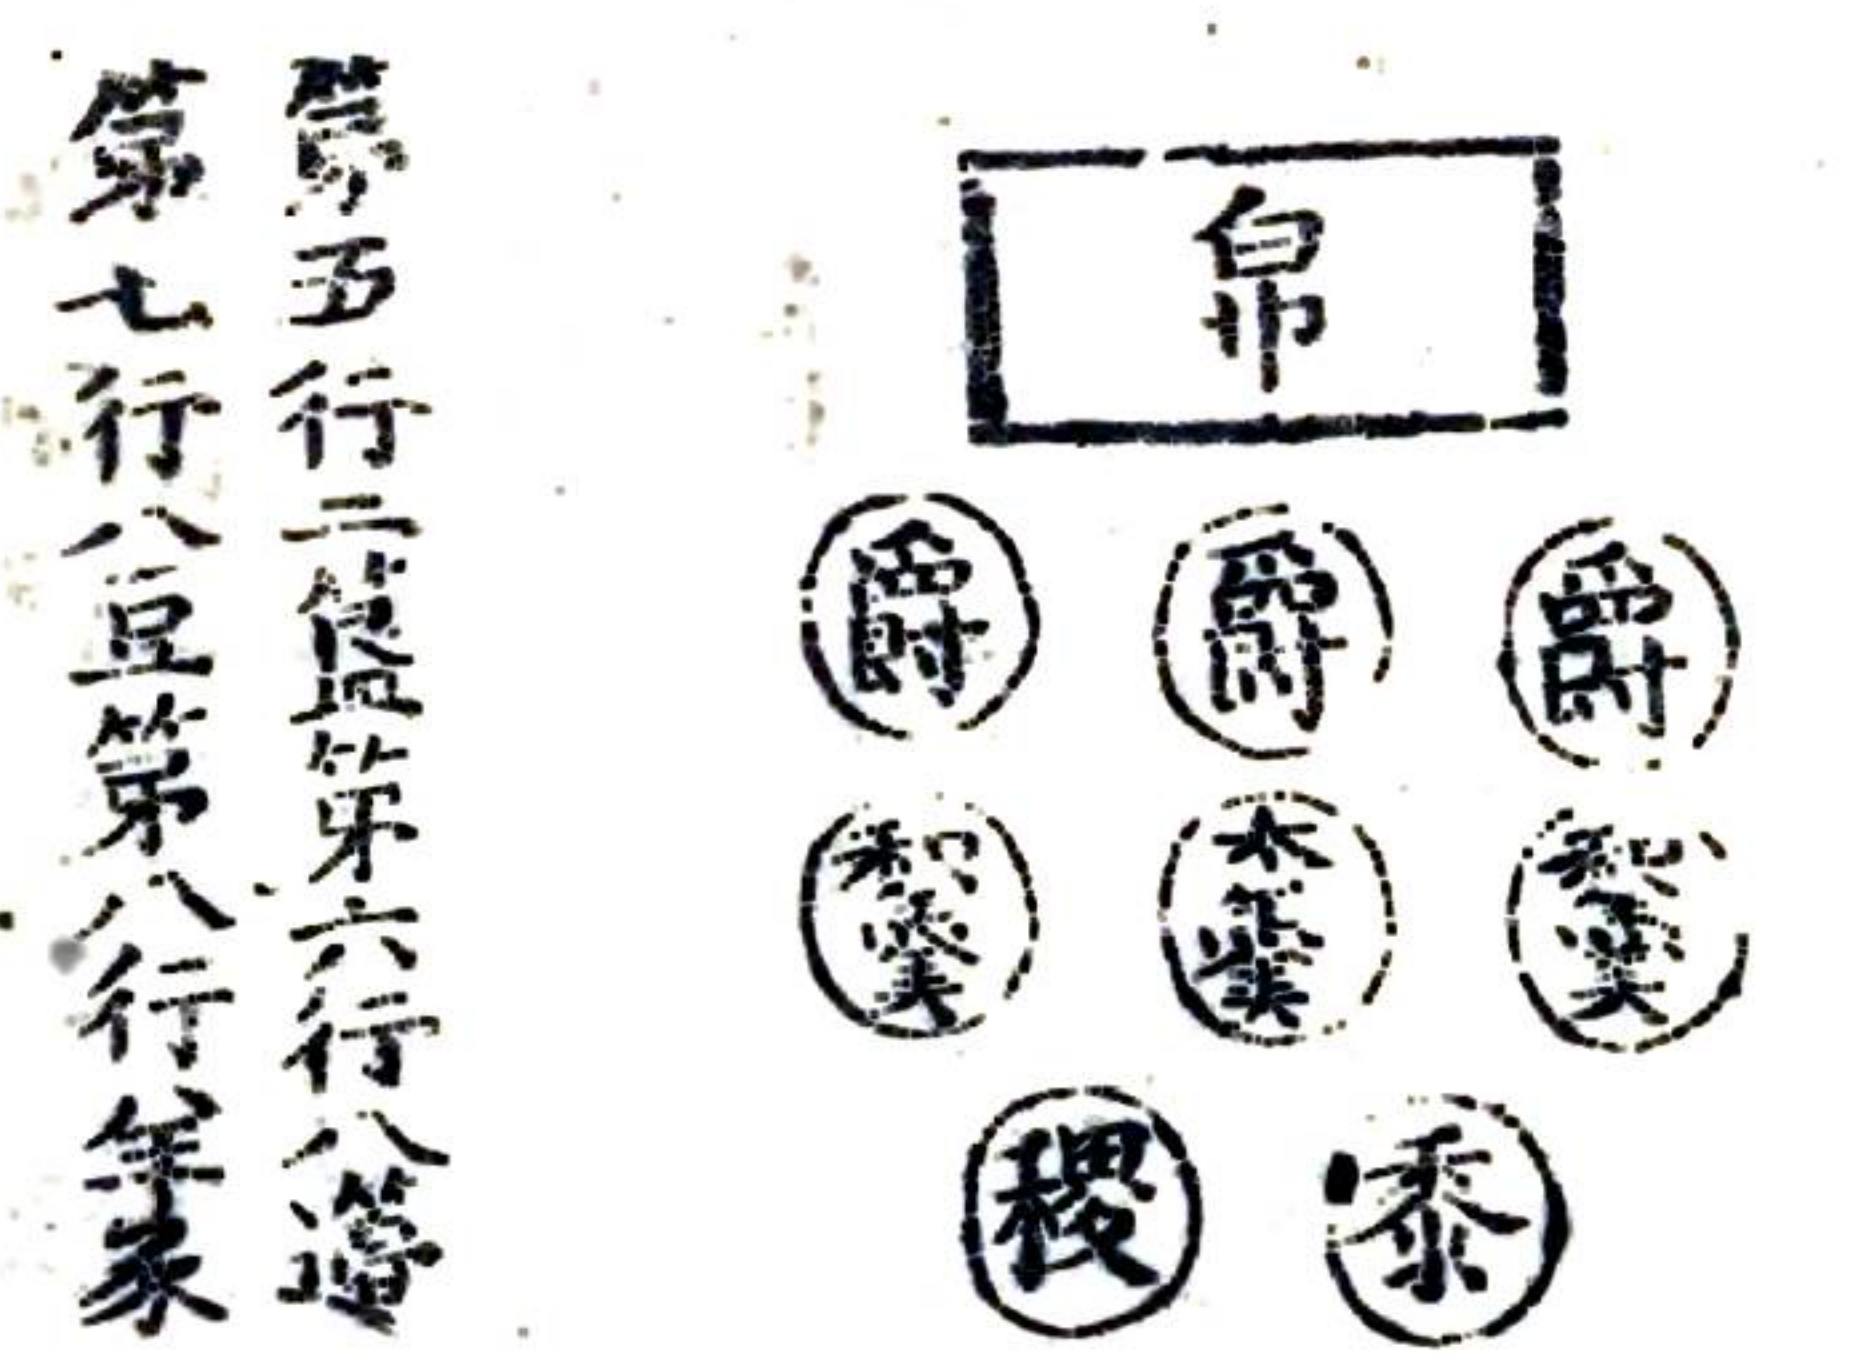 帛
爵 爵 爵
和羹 太羹 和羹
黍 稷
第五行二簋第六行八籩
第七行八豆第八行羊豕